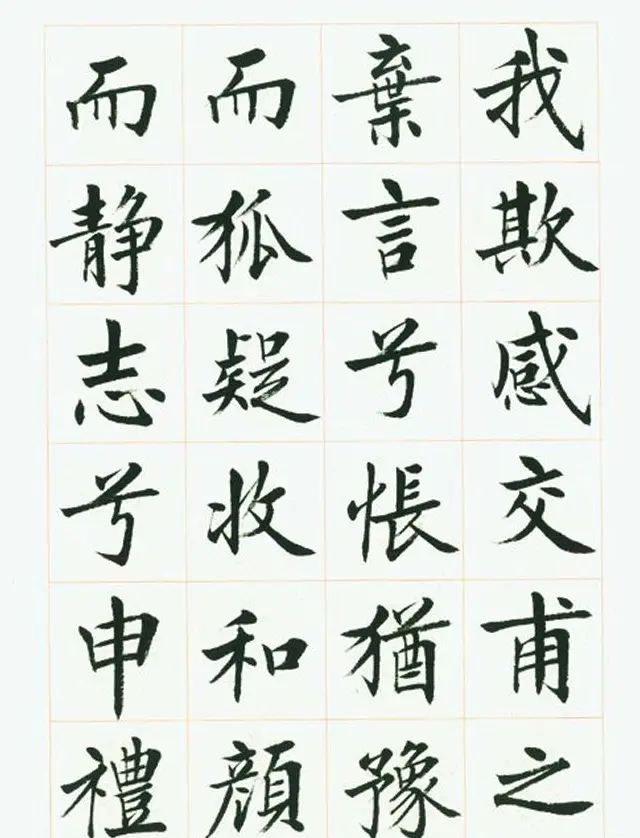 我欺感交甫之
棄言兮悵猶豫
而狐疑收和顔
而静志兮申禮